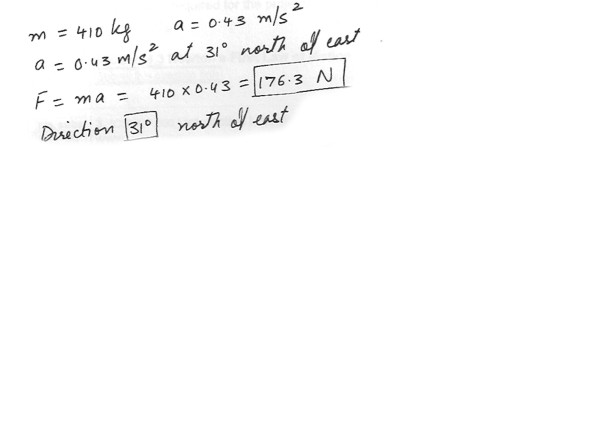 m = 410 kg a = 0.43 m/s²
a = 0.43 m/s² at 31° north of east
F = ma = 410 x 0.43 = 176.3 N
Direction 31° north of east